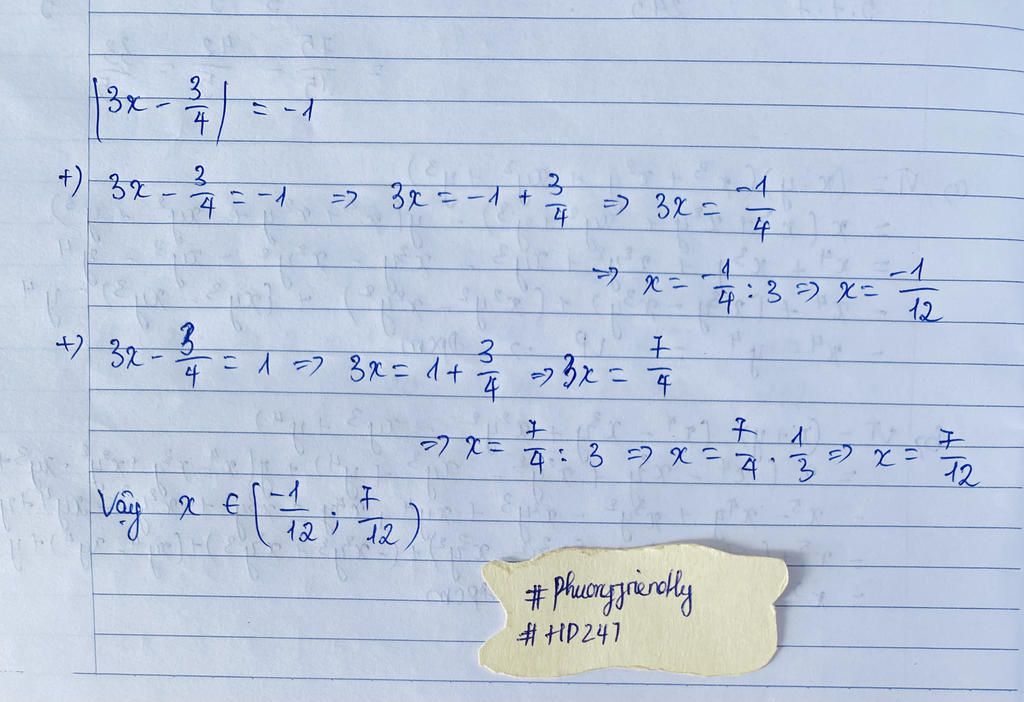 |3x - 3/4| = -1
+) 3x - 3/4 = -1 => 3x = -1 + 3/4 => 3x = -1/4
=> x = -1/4 : 3 => x = -1/12
+) 3x - 3/4 = 1 => 3x = 1 + 3/4 => 3x = 7/4
=> x = 7/4 : 3 => x = 7/4 . 1/3 => x = 7/12
Vậy x ∈ {-1/12 ; 7/12)
# Phuongfriendly
# HD247